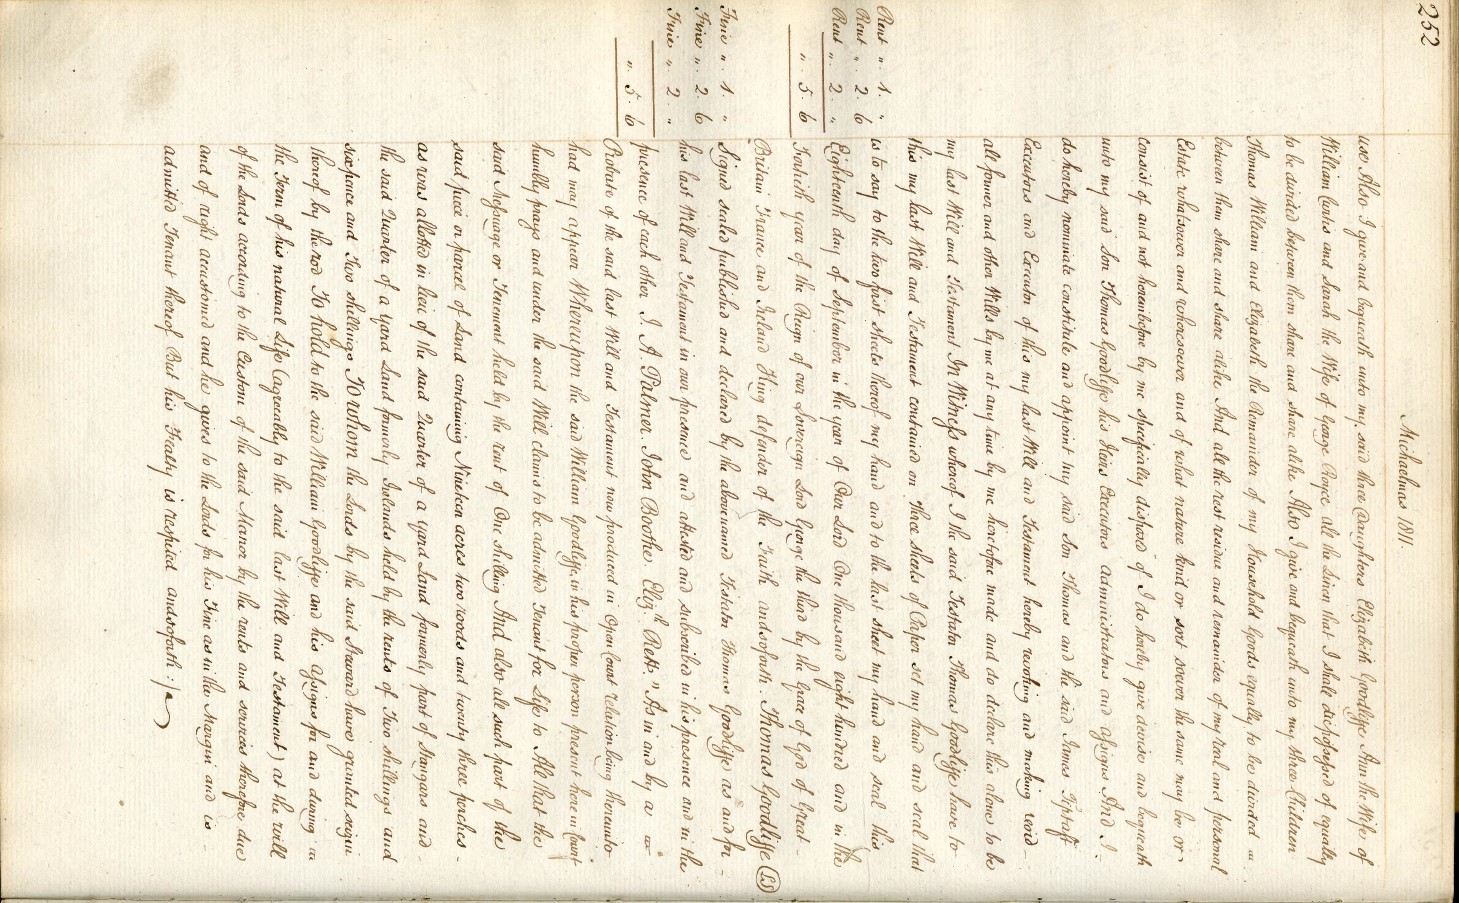 252
Michaelmas 1811.
use Also I give and bequeath unto my said three Daughters Elizabeth Goodliffe Ann the Wife of
William Curtis and Sarah the Wife of George Royce all the Linen that I shall die possessed of equally
to be divided between them share and share alike Also I give and bequeath unto my three Children
Thomas William and Elizabeth the Remainder of my Household Goods equally to be divided
between them share and share alike And all the rest residue and remainder of my real and personal
Estate whatsoever and wheresoever and of what nature kind or sort soever the same may be or
consist of and not hereinbefore by me specifically disposed of I do hereby give devise and bequeath
unto my said Son Thomas Goodliffe his Heirs Executors administrators and assigns And I
do hereby nominate constitute and appoint my said Son Thomas and the said James Tiptaft
Executors and Executor of this my last Will and Testament hereby revoking and making void
all former and other Wills by me at any time by me heretofore made and do declare this alone to be
my last Will and Testament In Witness whereof I the said Testator Thomas Goodliffe have to
this my last Will and Testament contained on three sheets of Paper set my hand and seal that
Rent „ 1. „ is to say to the two first sheets hereof my hand and to the last sheet my hand and seal this
Rent „ 2. 6
Rent „ 2. „ Eighteenth day of September in the year of Our Lord One thousand eight hundred and in the
„ 5. 6 Fortieth year of the Reign of our Sovereign Lord George the third by the Grace of God of Great
Britain France and Ireland King defender of the Faith and so forth. Thomas Goodliffe (LS)
Fine „ 1. „ Signed sealed published and declared by the abovenamed Testator Thomas Goodliffe as and for
Fine „ 2. 6 his last Will and Testament in our presence and attested and subscribed in his presence and in the
Fine „ 2. „ presence of each other J. A. Palmer. John Boothe. Eliz.th Rett. „ As in and by a
„ 5. 6 Probate of the said last Will and Testament now produced in Open Court relation being thereunto
had may appear Whereupon the said William Goodliffe in his proper person present here in Court
humbly prays and under the said Will claims to be admitted Tenant for Life to All that the
said Messuage or Tenement held by the rent of One shilling And also all such part of the
said piece or parcel of Land containing Nineteen acres two roods and twenty three perches
as was allotted in lieu of the said Quarter of a Yard Land formerly part of Stangars and
the said Quarter of a Yard Land formerly Irelands held by the rents of Two shillings and
sixpence and Two shillings To whom the Lords by the said Steward have granted seizin
thereof by the rod To hold to the said William Goodliffe and his Assigns for and during
the Term of his natural Life (agreeably to the said last Will and Testament) at the will
of the Lords according to the Custom of the said Manor by the rents and services therefore due
and of right accustomed and he gives to the Lords for his Fine as in the Margin and is
admitted Tenant thereof But his Fealty is respited and so forth